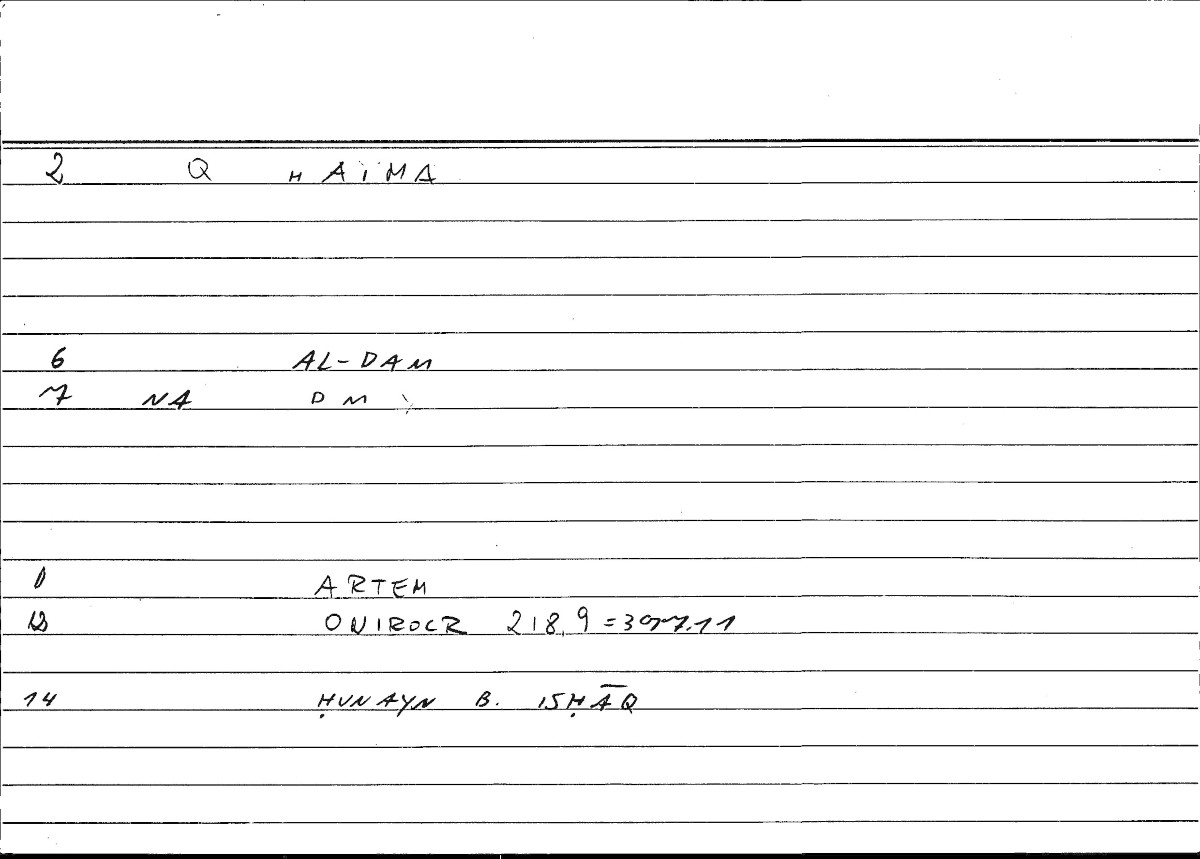 2 Q H AiMA
6 AL-DAM
7 NA DM
ARTEM
12 ONIROCR 218,9 =
14 ḤUNAYN B. ISḤĀQ